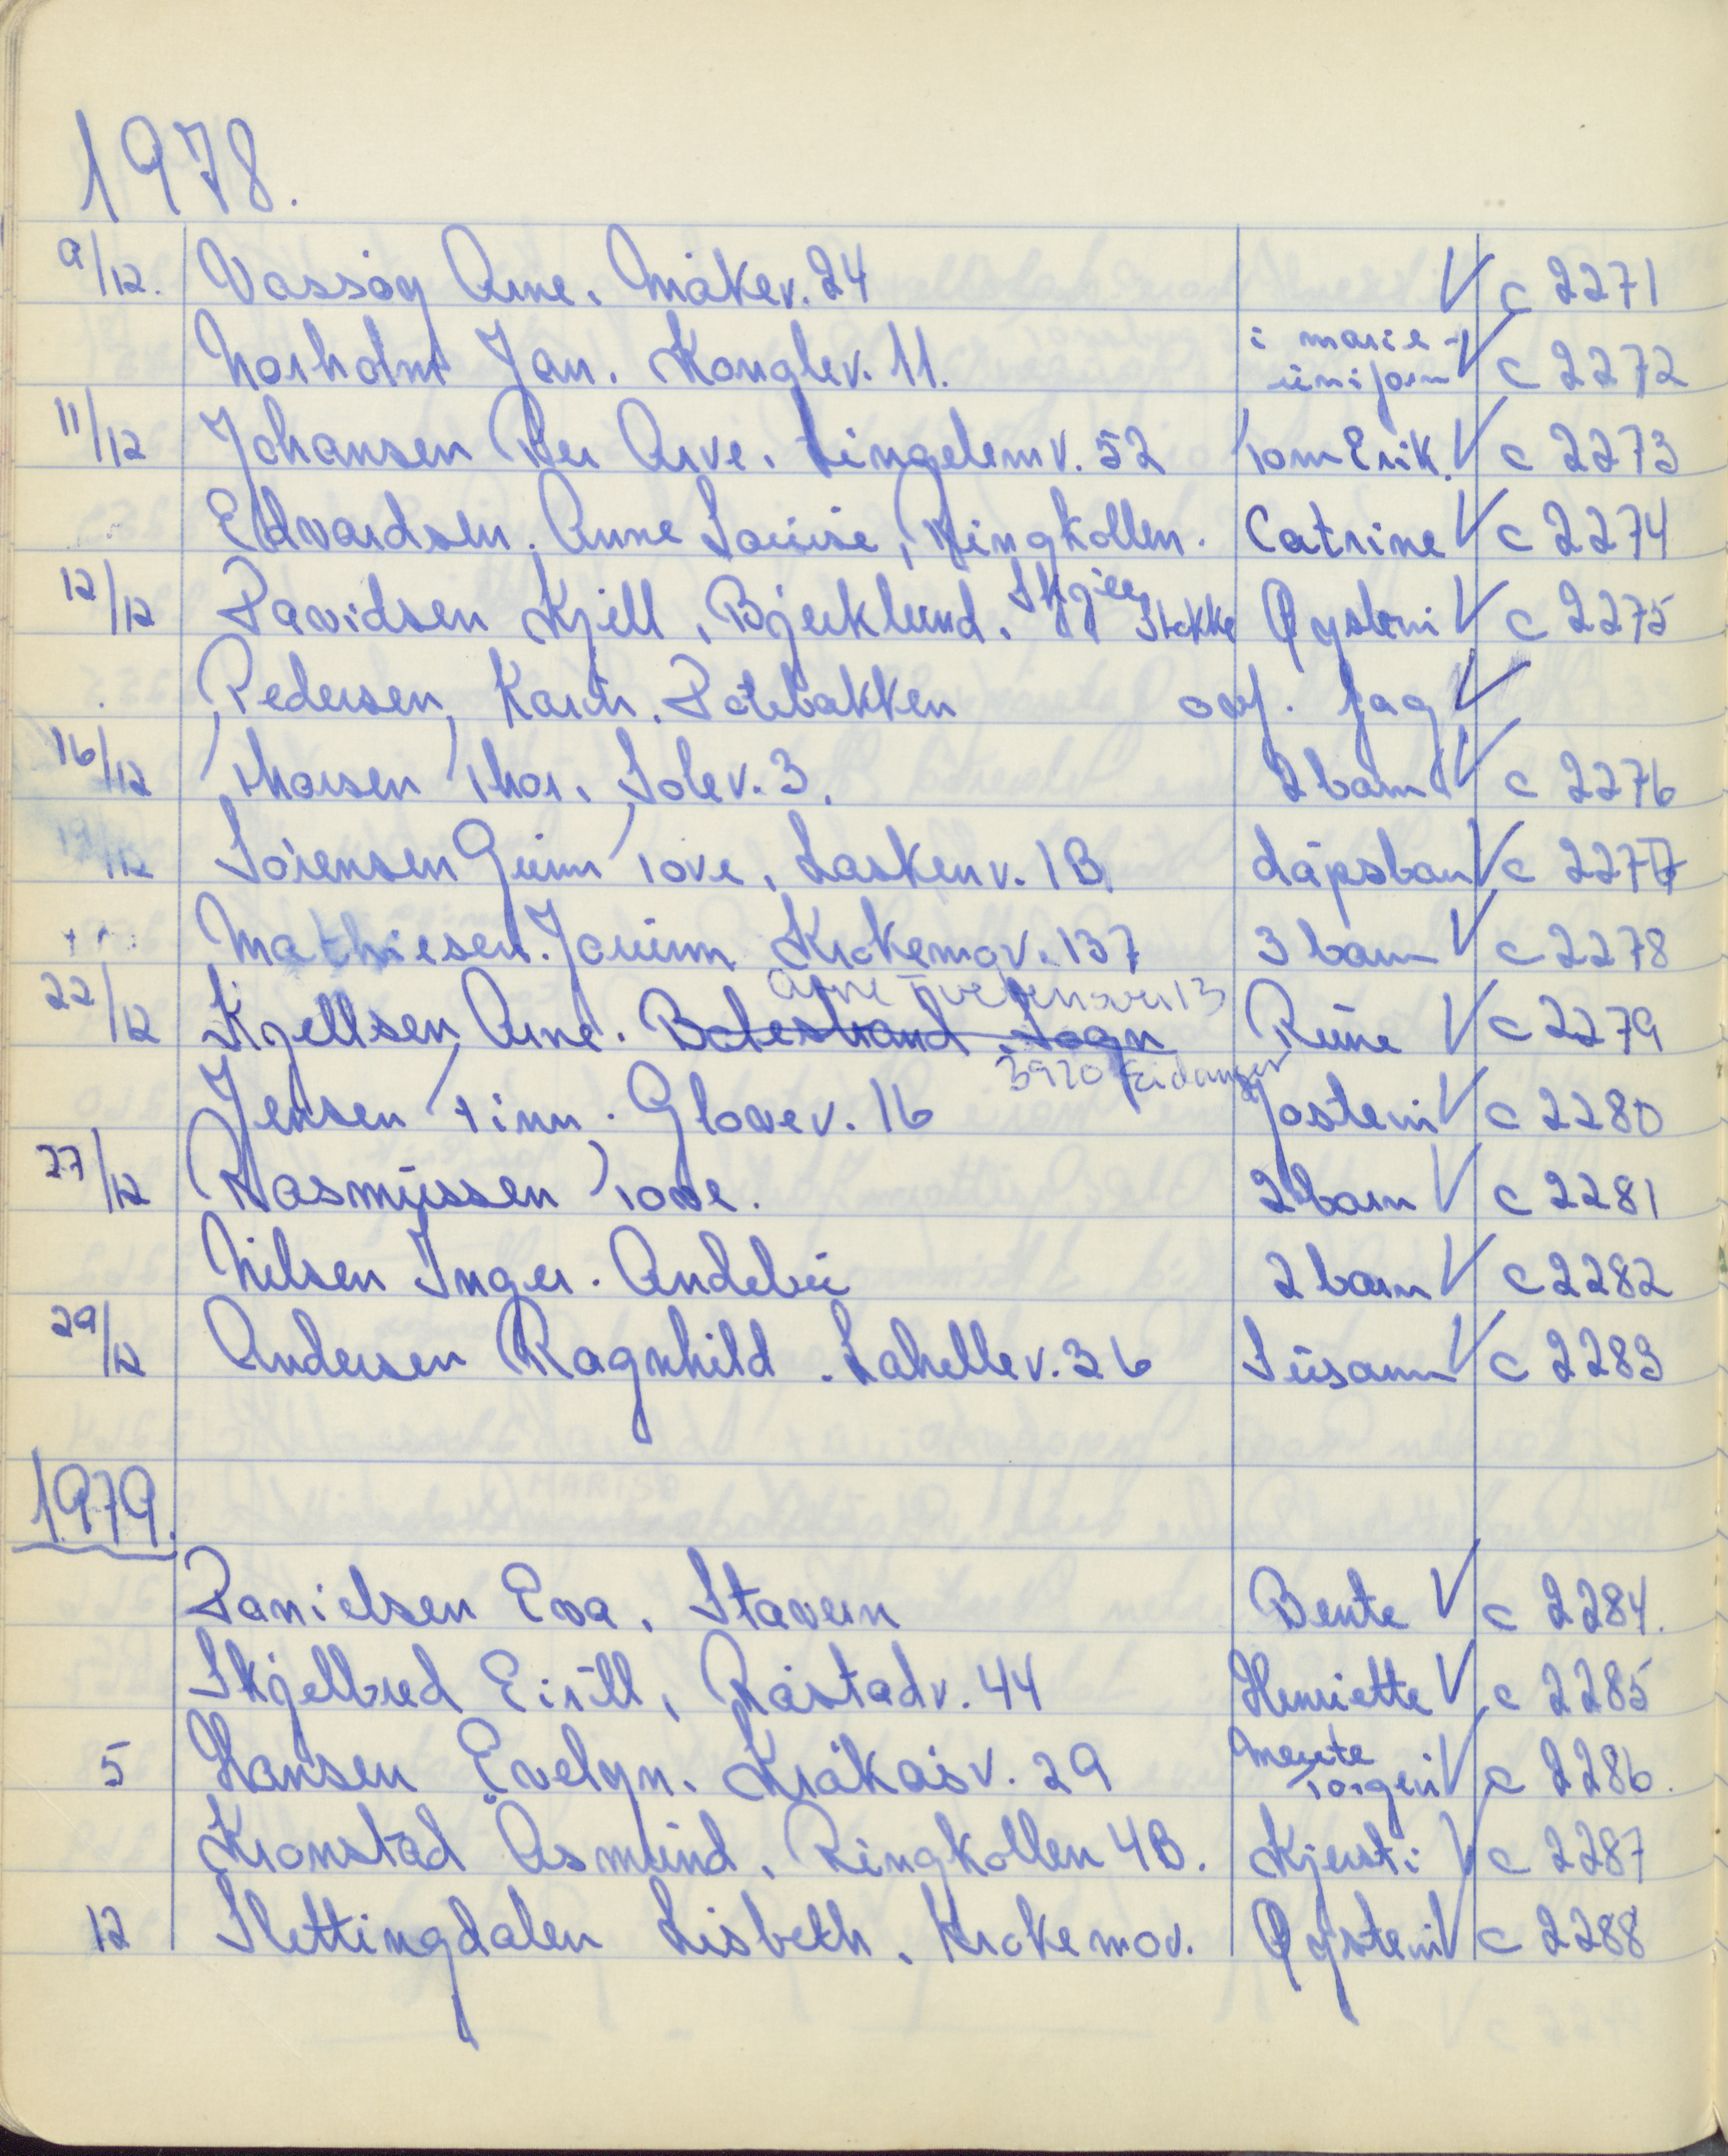 1978.
9/12. Vassøy Arne. Måkev. 24 V c 2271
Norholm Jan. Konglev. 11. i marie- uniform V c 2272
11/12 Johansen Per Arve. Lingelemv. 52 Tom Erik. V c 2273
Edvardsen. Anne Louise, Ringkollen. Catrine V c 2274
12/12 Davidsen Kjell, Bjerklund. Skjee Stokke Øystein V c 2275
Pedersen, Karin. Dølebakken fag V
16/12 Thorsen Thor. Solev. 3. 2 barn V c 2276
12 Sørensen Gunn Tove, Laskenv. 1B dåpsbarn V c 2277
Mathiesen. Jorunn Krokemov. 137 3 barn V c 2278
Arne 13
22/12 Kjellsen Arne. Balestrand Sogn Rune V c 2279
3920 Eidanger
Jensen Finn. Glovev. 16 Jostein V c 2280
27/12 Rasmussen Tove. 2 barn V c 2281
Nilsen Inger. Andebu 2 barn V c 2282
29/12 Andersen Ragnhild. Lahellev. 36 Susann V c 2283
1979.
Danielsen Eva. Stavern Bente V c 2284.
Skjelbred Eirill, Råstadv. 44 Henriette V c 2285
5 Hansen Evelyn. Kråkåsv. 29 Merete Torgeir V c 2286.
Kronstad Åsmund. Ringkollen 4B. Kjersti V c 2287
12 Slettingdalen Lisbeth. Krokemov. Øystein V c 2288